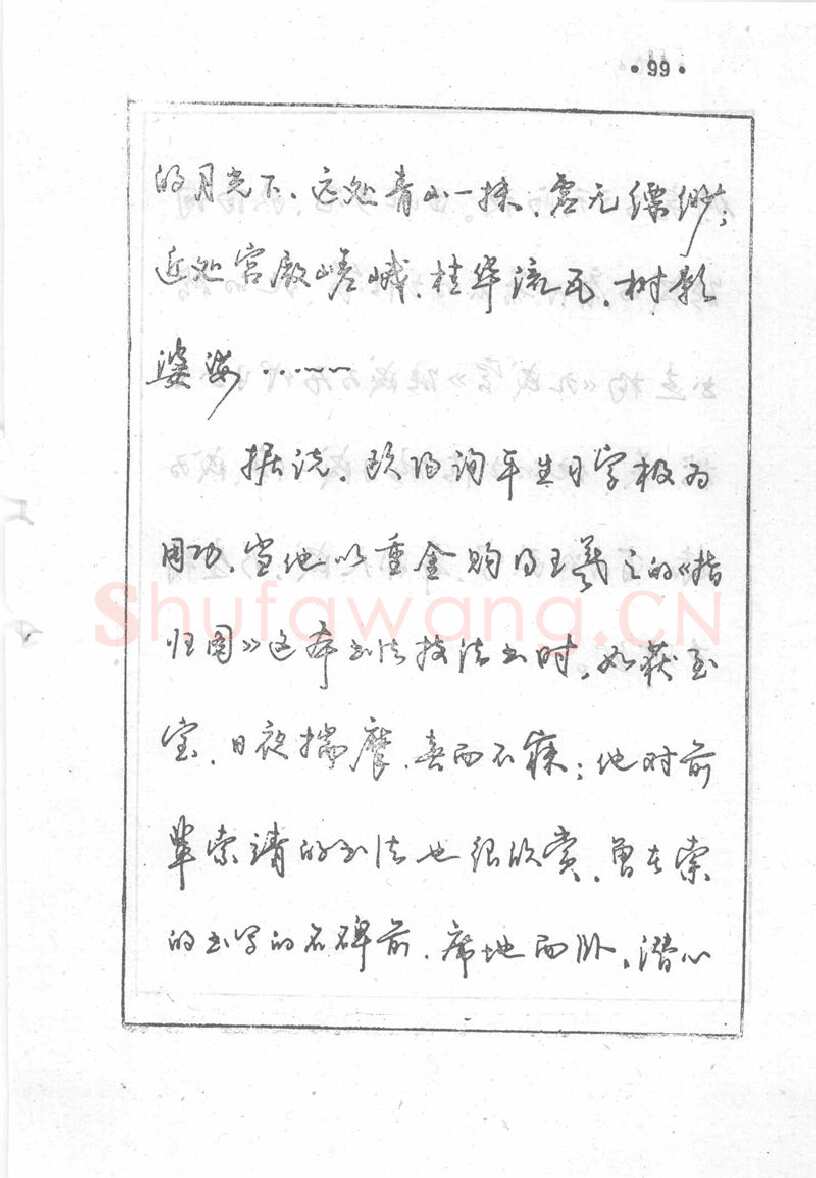 ·99·
的月光下、远处青山一抹、虚无缥缈；
近处宫殿嵯峨、桂华流瓦、树影
婆娑……
据说，欧阳询平生习字极为
用功，当他以重金购得王羲之的《指
归图》这本书法技法书时，如获至
宝，日夜揣摩，喜而不寐；他对前
辈索靖的书法也很欣赏，曾在索
的书写的石碑前，席地而卧，潜心
Shufawang.CN